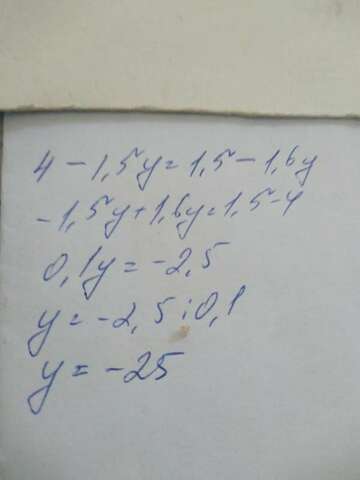 4 - 1,5y = 1,5 - 1,6y
-1,5y + 1,6y = 1,5 - 4
0,1y = -2,5
y = -2,5 : 0,1
y = -25